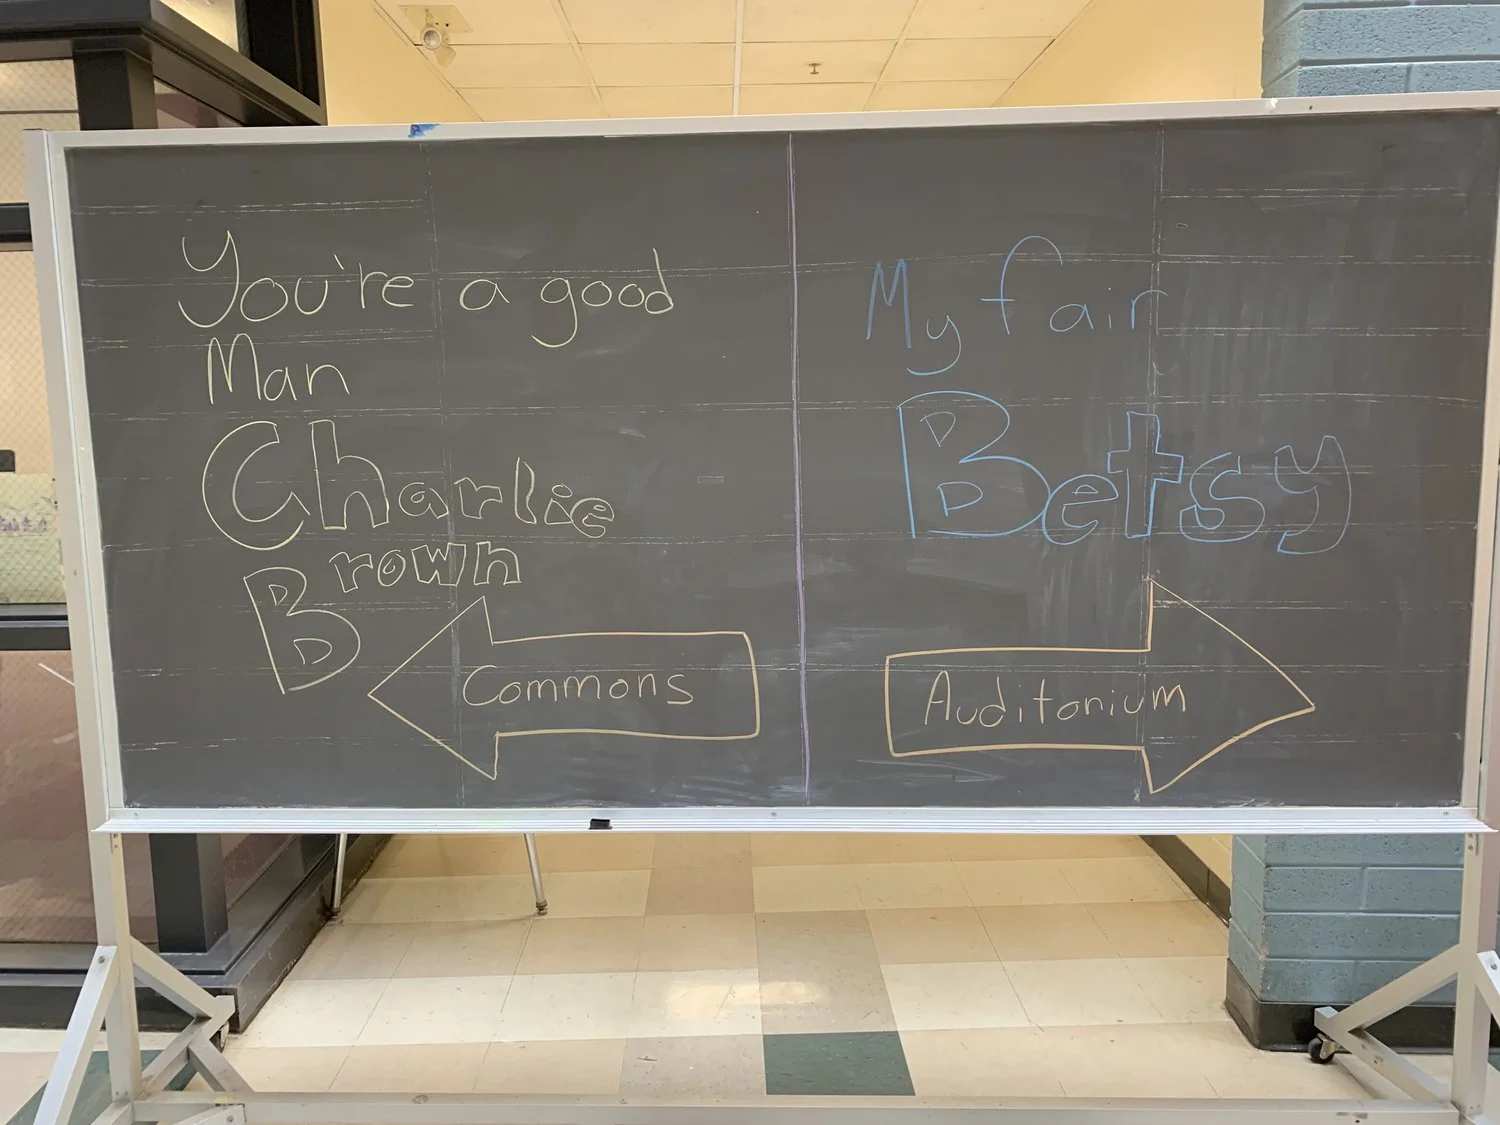 You're a good
Man
Charlie
Brown
Commons
My fair
Betsy
Auditorium